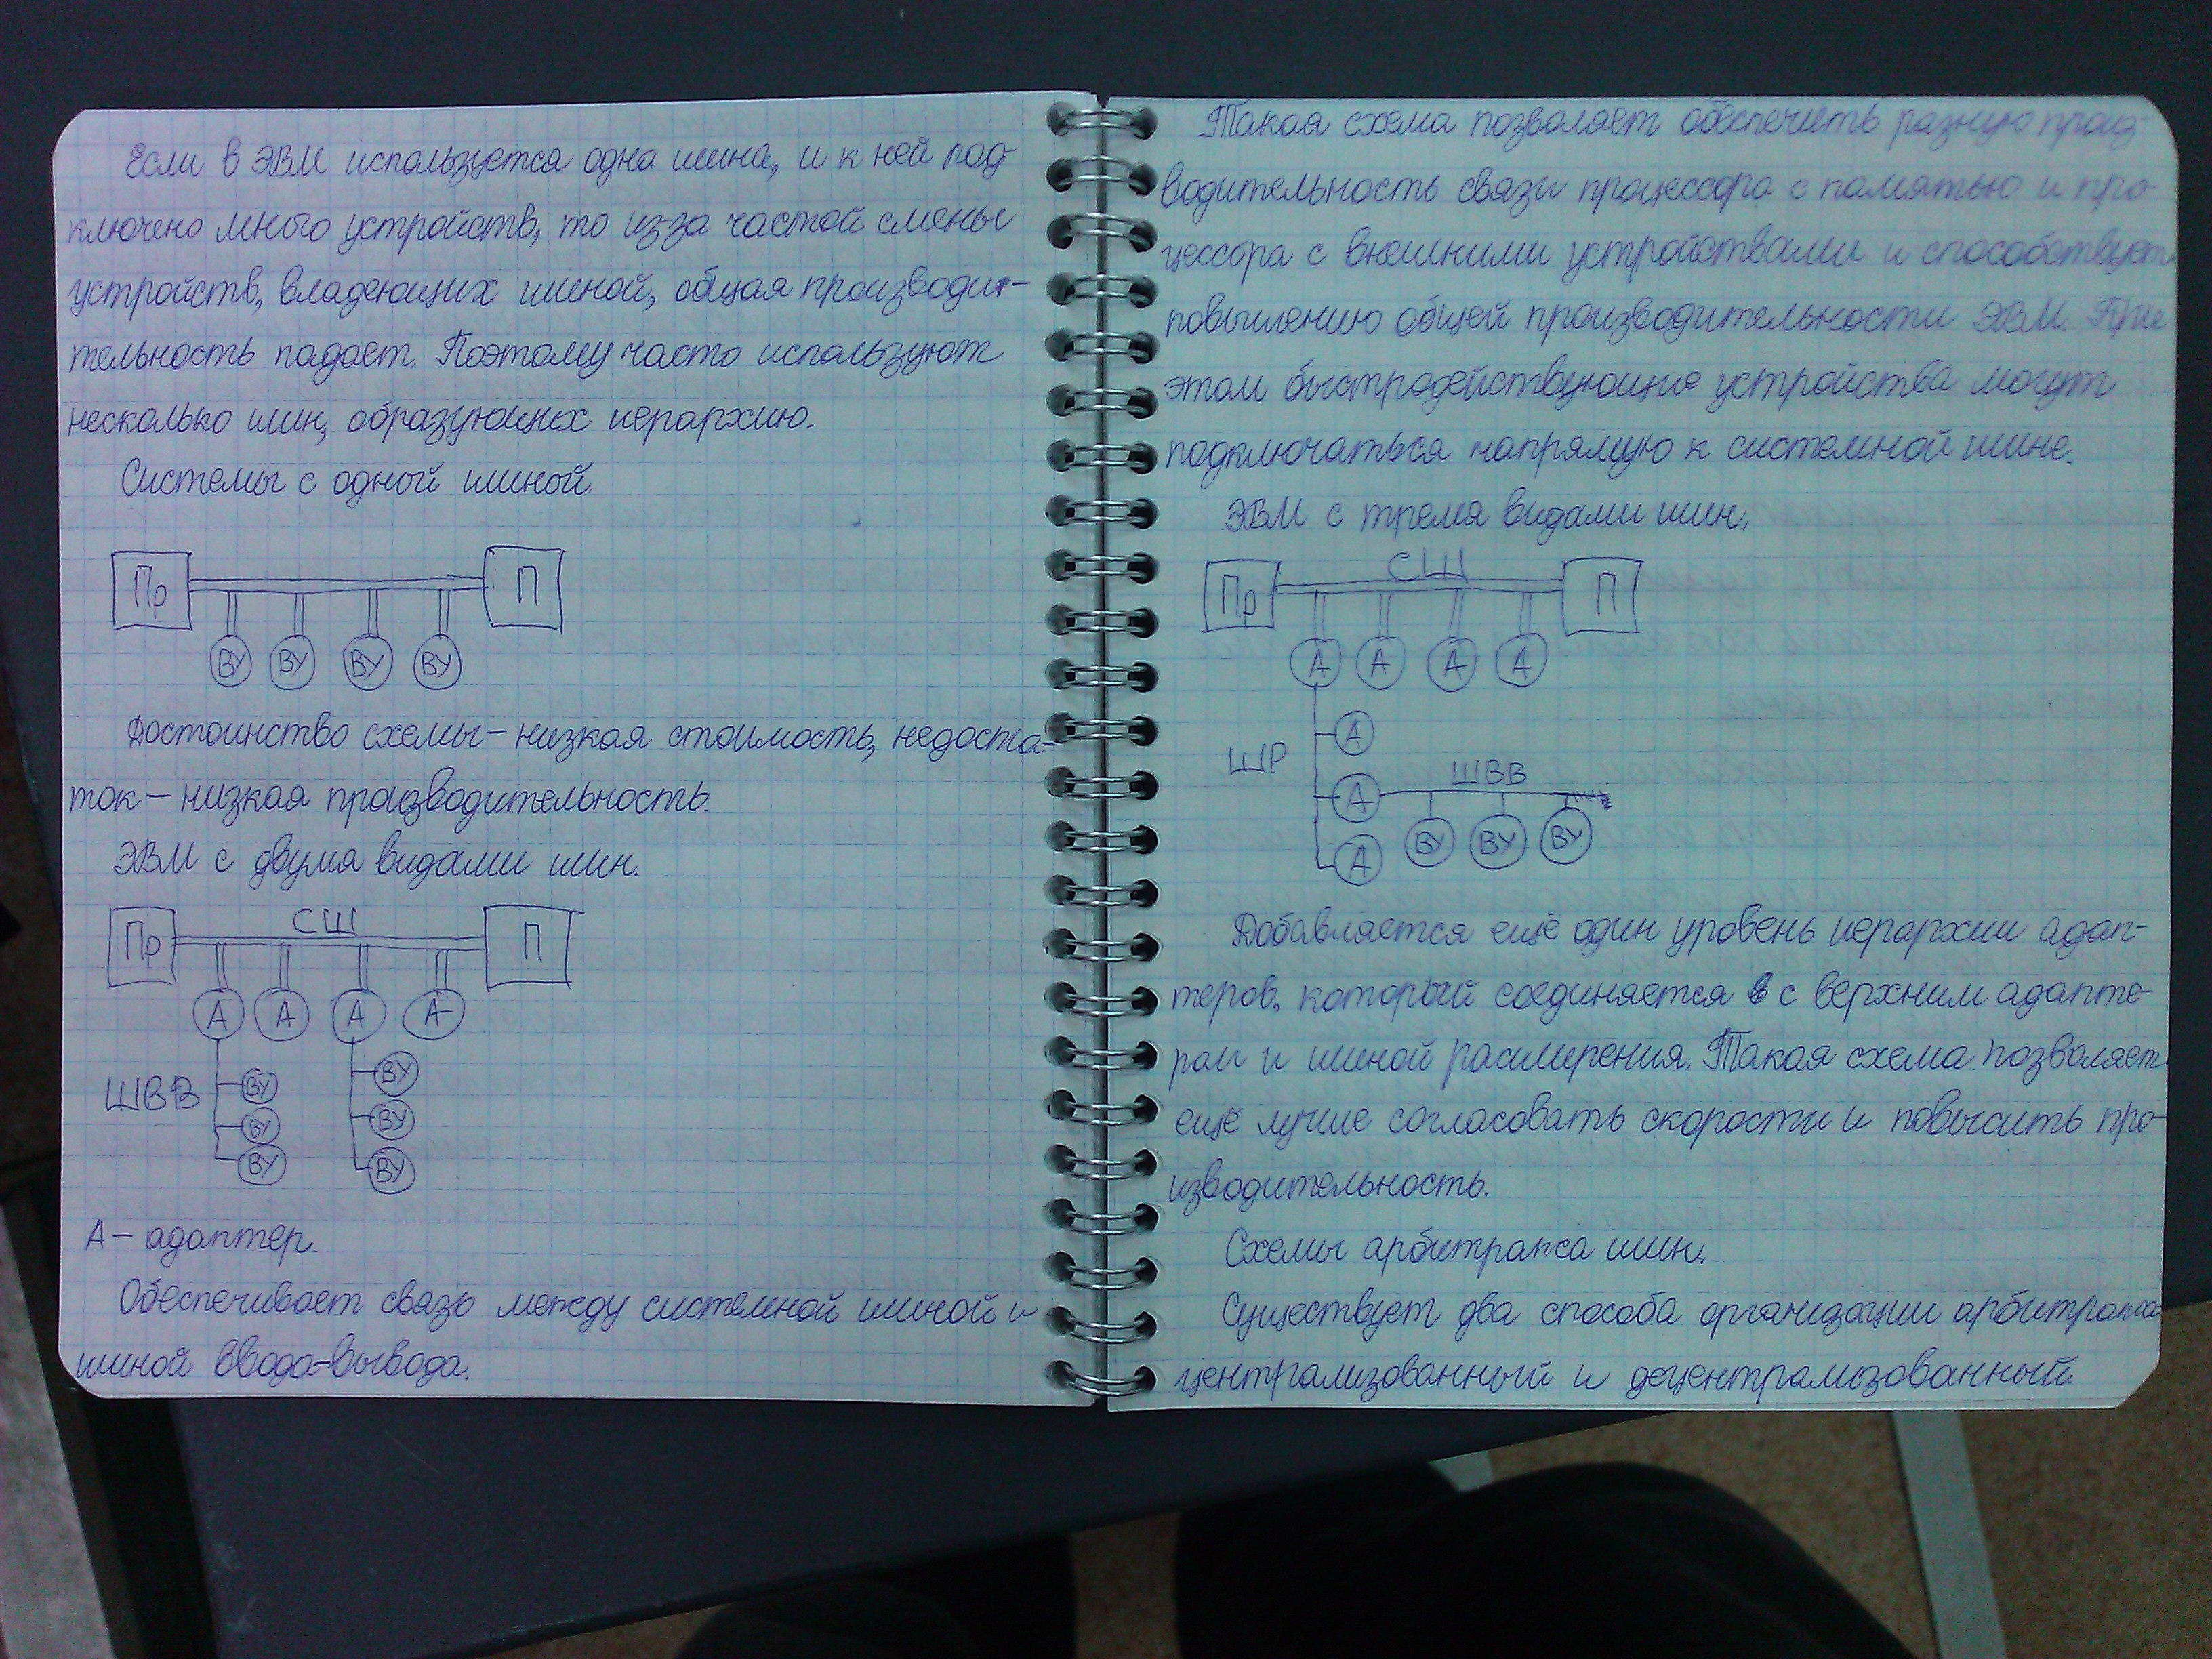 Если в ЭВМ используется одна шина, и к ней под-
ключено много устройств, то из-за частой смены
устройств, владеющих шиной, общая производи-
тельность падает. Поэтому часто используют
несколько шин, образующих иерархию.
Системы с одной шиной.
Пр П
ВУ ВУ ВУ ВУ
Достоинство схемы – низкая стоимость, недоста-
ток – низкая производительность.
ЭВМ с двумя видами шин.
Пр СШ П
А А А А
ВУ
ШВВ ВУ
ВУ ВУ
ВУ ВУ
А – адаптер.
Обеспечивает связь между системной шиной и
шиной ввода-вывода.
Такая схема позволяет обеспечить разную произ-
водительность связи процессора с памятью и про-
цессора с внешними устройствами и способствует
повышению общей производительности ЭВМ. При
этом быстродействующие устройства могут
подключаться напрямую к системной шине.
ЭВМ с тремя видами шин.
Пр СШ П
А А А А
А
ШР ШВВ
А
А ВУ ВУ ВУ
Добавляется ещё один уровень иерархии адап-
теров, который соединяется с верхним адапте-
ром и шиной расширения. Такая схема позволяет
ещё лучше согласовать скорости и повысить про-
изводительность.
Схемы арбитража шин.
Существует два способа организации арбитража:
централизованный и децентрализованный.